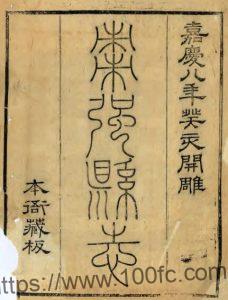 嘉慶八年癸亥開雕
棗强縣志
本衙藏板
https://www.100fc.com